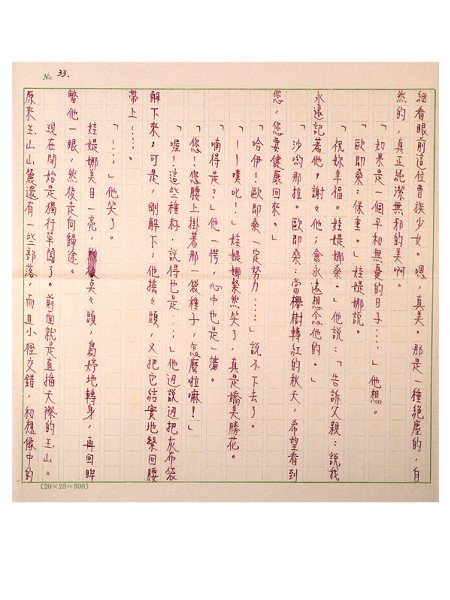 No. 33.
細看眼前這位曹族少女。嗯，真美。那是一種絕塵的，自
然的，真正純潔無邪的美啊。
「如果是一個平和無憂的日子……」他想。
「歐即桑：保重。」娃媞娜說。
「祝妳幸福，娃媞娜桑。」他說：「告訴父親：說我
永遠記著他，謝々他；會永遠想念他的。」
「沙喲那拉。歐即桑：當櫸樹轉紅的秋天，希望看到
您，您要健康回來。」
「哈伊！歐即桑一定努力……」說不下去了。
「——噗吧！」娃媞娜粲然笑了，真是嬌美勝花。
「喃得是？」他一愕，心中也是一盪。
「您！您腰上掛著那一袋種子，怎麼啦嘛！」
「喔！這些種籽，說得也是……」他邊說邊把灰布袋
解下來，可是，剛解下，他搖々頭，又把它結實地繫回腰
帶上……
「！……」他笑了。
娃媞娜美目一亮，點々頭，裊婷地轉身，再回眸
瞥他一眼，然後走向歸途。
現在開始是獨行草面了。前面就是直插天際的玉山。
原來玉山山麓還有一些部落，而且小徑交錯，和想像中的
(20×25=500)